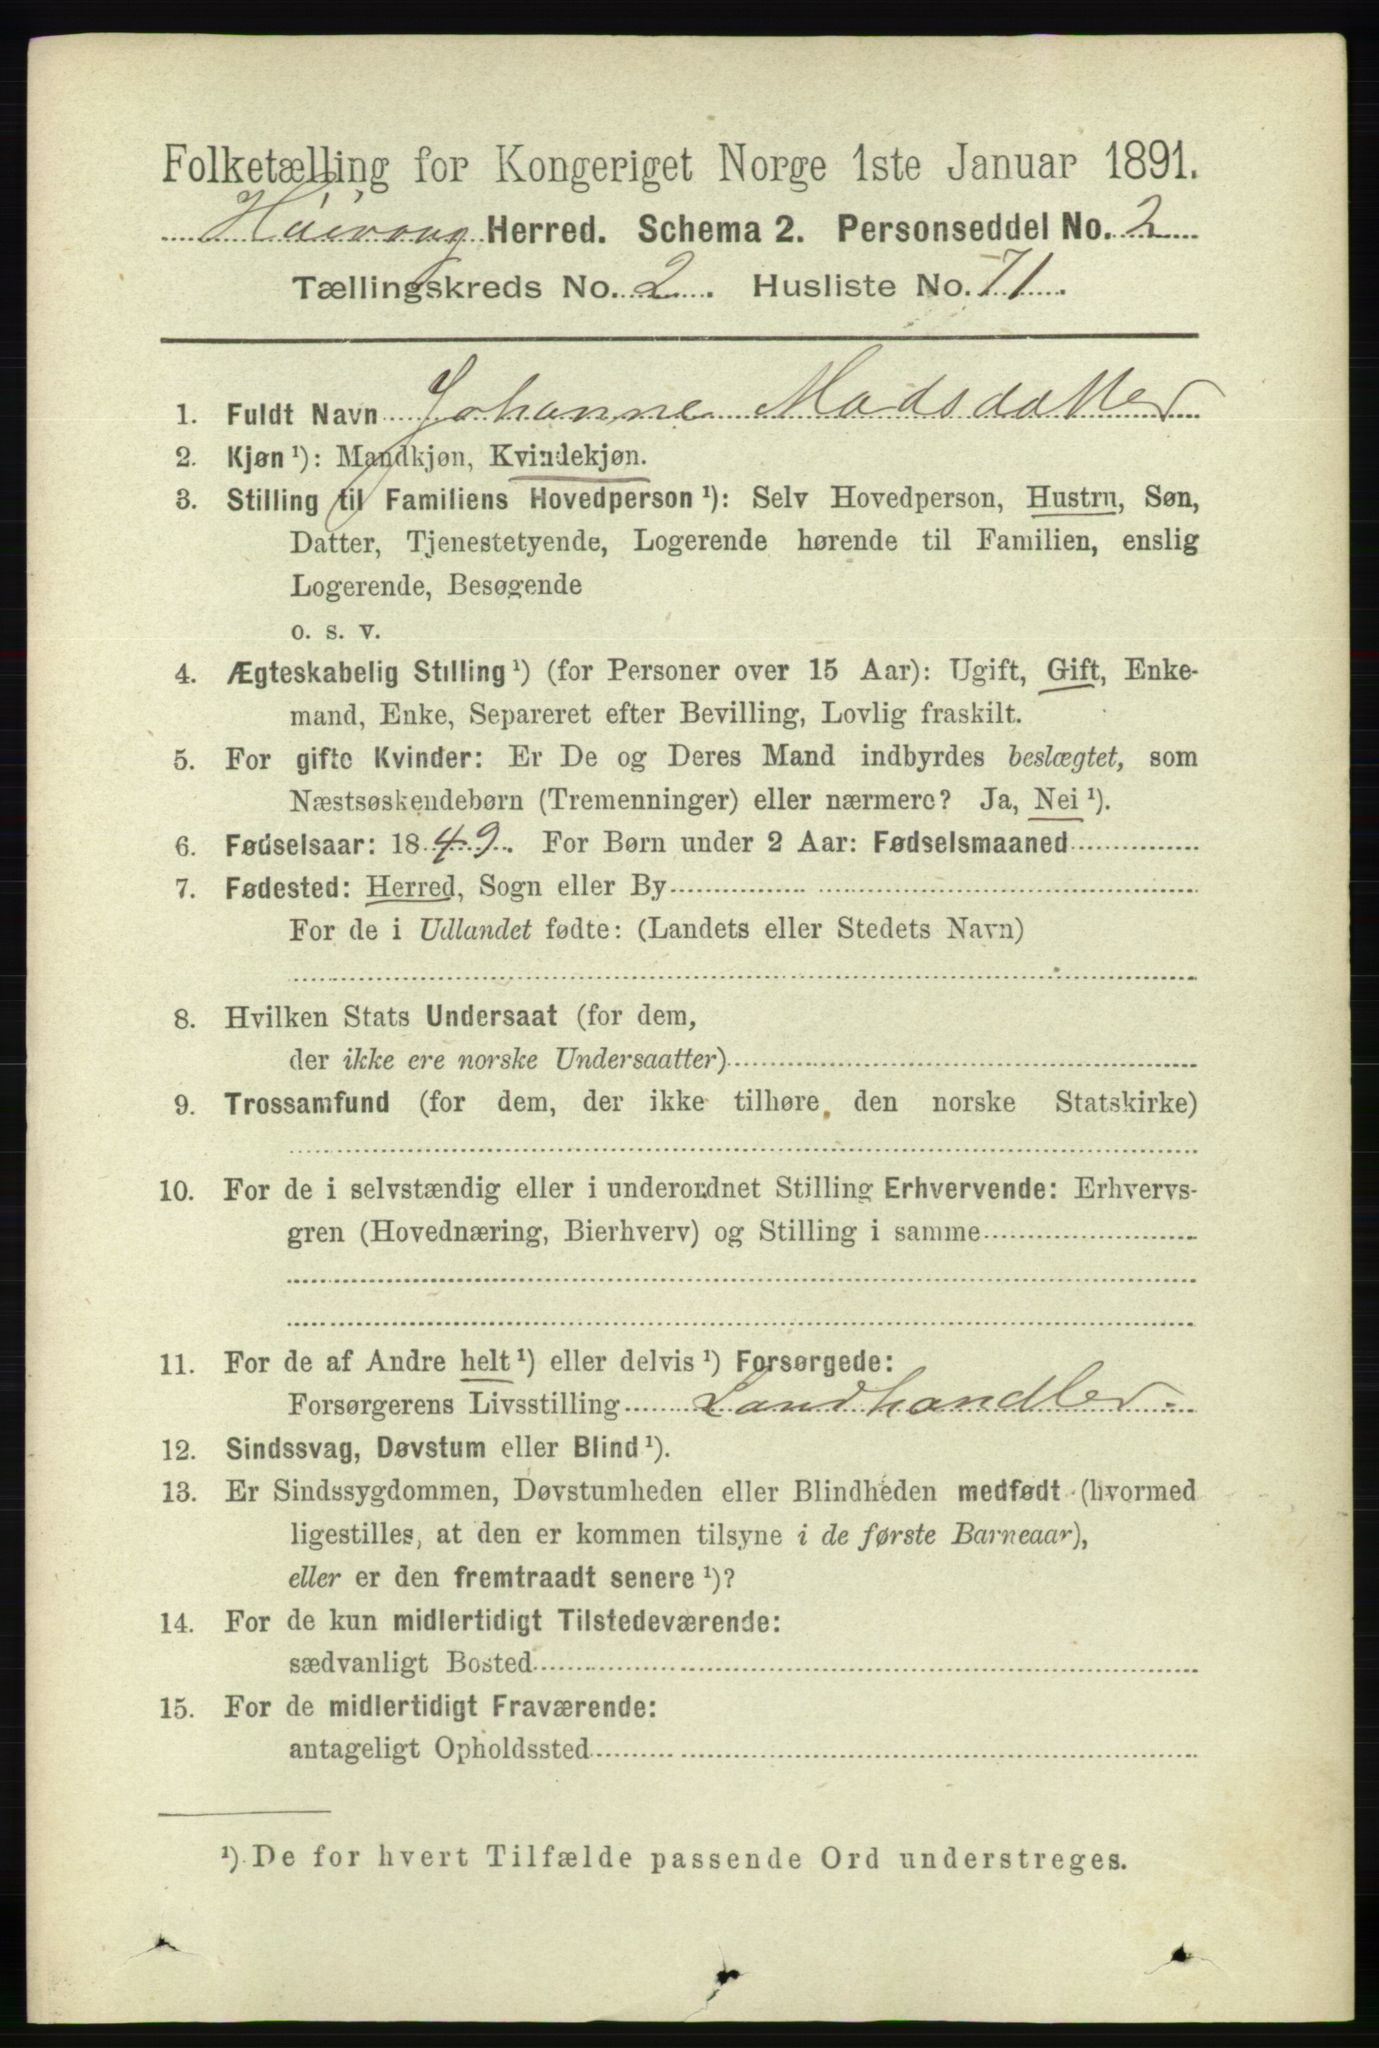 Folketælling for Kongeriget Norge 1ste Januar 1891.
Høivaag Herred. Schema 2. Personseddel No. 2
Tællingskreds No. 2. Husliste No. 71.
1. Fuldt Navn Johanne Madsdatter
2. Kjøn ¹): Mandkjøn, Kvindekjøn.
3. Stilling til Familiens Hovedperson ¹): Selv Hovedperson, Hustru, Søn,
Datter, Tjenestetyende, Logerende hørende til Familien, enslig
Logerende, Besøgende
o. s. v.
4. Ægteskabelig Stilling ¹) (for Personer over 15 Aar): Ugift, Gift, Enke-
mand, Enke, Separeret efter Bevilling, Lovlig fraskilt.
5. For gifte Kvinder: Er De og Deres Mand indbyrdes beslægtet, som
Næstsøskendebørn (Tremenninger) eller nærmere? Ja, Nei ¹).
6. Fødselsaar: 1849. For Børn under 2 Aar: Fødselsmaaned
7. Fødested: Herred, Sogn eller By
For de i Udlandet fødte: (Landets eller Stedets Navn)
8. Hvilken Stats Undersaat (for dem,
der ikke ere norske Undersaatter)
9. Trossamfund (for dem, der ikke tilhøre den norske Statskirke)
10. For de i selvstændig eller i underordnet Stilling Erhvervende: Erhvervs-
gren (Hovednæring, Bierhverv) og Stilling i samme
11. For de af Andre helt ¹) eller delvis ¹) Forsørgede:
Forsørgerens Livsstilling Landhandler.
12. Sindssvag, Døvstum eller Blind ¹).
13. Er Sindssygdommen, Døvstumheden eller Blindheden medfødt (hvormed
ligestilles, at den er kommen tilsyne i de første Barneaar),
eller er den fremtraadt senere ¹)?
14. For de kun midlertidigt Tilstedeværende:
sædvanligt Bosted
15. For de midlertidigt Fraværende:
antageligt Opholdssted
¹) De for hvert Tilfælde passende Ord understreges.